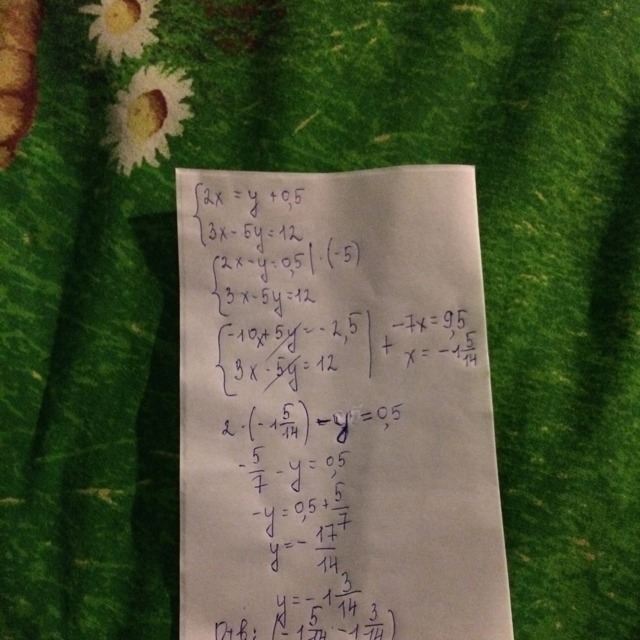 {2x = y + 0,5
{3x - 5y = 12
{2x - y = 0,5 | · (-5)
{3x - 5y = 12
{-10x + 5y = -2,5 | + -7x = 9,5
{3x - 5y = 12 | x = -1 5/14
2 · (-1 5/14) - y = 0,5
-5/7 - y = 0,5
-y = 0,5 + 5/7
y = -17/14
y = -1 3/14
Отв: (-1 5/14 -1 3/14)